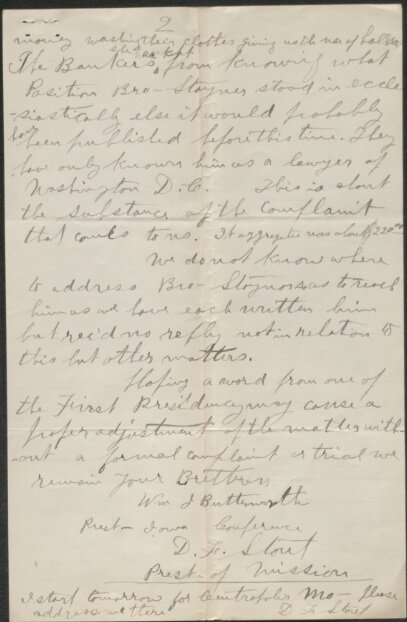 2
money washing their clothes giving us the use of hall &c
The Bankers she has kept from knowing what
Position Bro- Stayner stood in eccle
-siastically else it would probably
have
been published before this time. They
have only known him as a lawyer of
Washington D.C. This is about
the substance of the complaint
that comes to us. It aggregates now about $220.00
We do not know where
to address Bro- Stayner so as to reach
him as we have each written him
but rec'd no reply not in relation to
this but other matters.
Hoping a word from one of
the First Presidency may cause a
proper adjustment of the matter with-
-out a formal complaint or trial we
remain Your Brethren
Wm J Butterworth
Prest- Iowa Conference
D. F. Stout
Prest- of Mission
I start tomorrow for Centropolis Mo- Please
address me there D F Stout